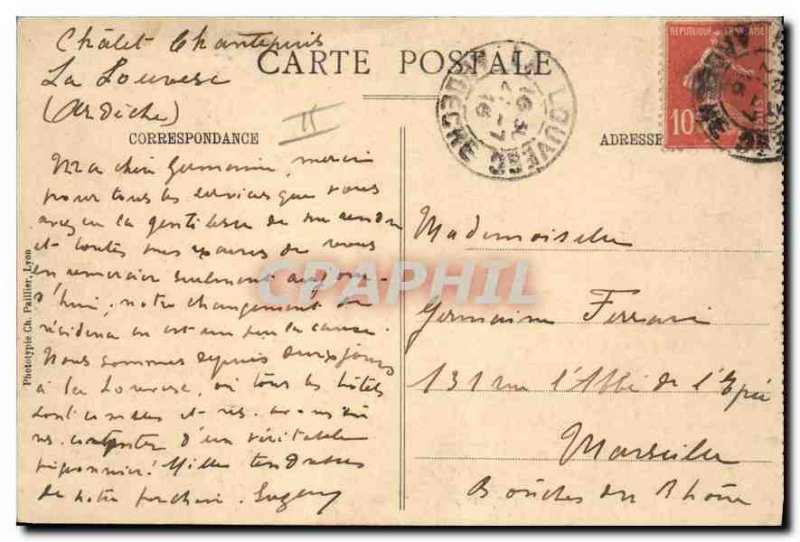 Châlet Chantepuis
La Louvesc
(Ardèche)
CARTE POSTALE
CORRESPONDANCE
ADRESSE
REPUBLIQUE FRANÇAISE
10
LOUVESC
ARDECHE
16
Ma chère Germaine, merci
pour tous les services que vous
avez eu la gentillesse de me rendre
et toutes mes excuses de vous
en remercier seulement aujour-
d'hui, notre changement de
résidence en est un peu la cause.
Nous sommes depuis
à La Louvesc, où tous les hôtels
sont
d'un véritable
pigeonnier! Mille tendresses
de notre part
Mademoiselle
Germaine Ferrari
131 rue l'Abbé de l'Epée
Marseille
Bouches du Rhône
Phototypie Ch. Paillier, Lyon
CPAPHIL